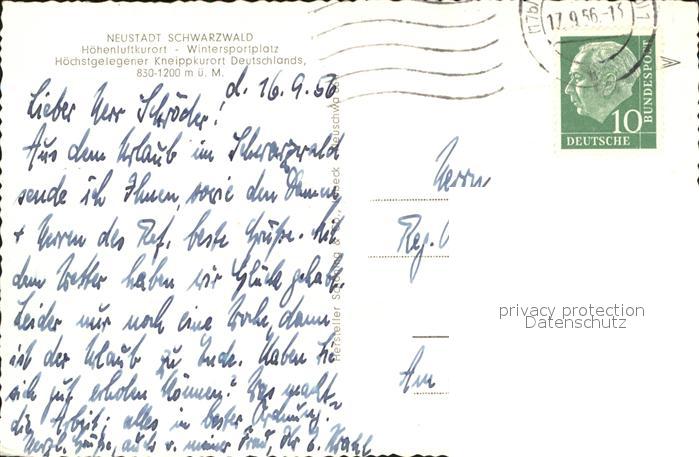 NEUSTADT SCHWARZWALD
Höhenluftkurort - Wintersportplatz
Höchstgelegener Kneippkurort Deutschlands,
830-1200 m ü. M.
d. 16.9.56
Lieber Herr Schröder!
Aus dem Urlaub im Schwarzwald
sende ich Ihnen, sowie den Damen
+ Herren des Ref. beste Grüße. Mit
dem Wetter haben wir Glück gehabt.
Leider nur noch eine Woche, dann
ist der Urlaub zu Ende. Haben Sie
sich gut erholen können? Was macht
die Arbeit; alles in bester Ordnung.
Herzl. Grüße, auch v. meiner Frau, Ihr
Hersteller
17.9.56.-13
10
DEUTSCHE
BUNDESPOST
Herrn
Reg.
Am
privacy protection
Datenschutz